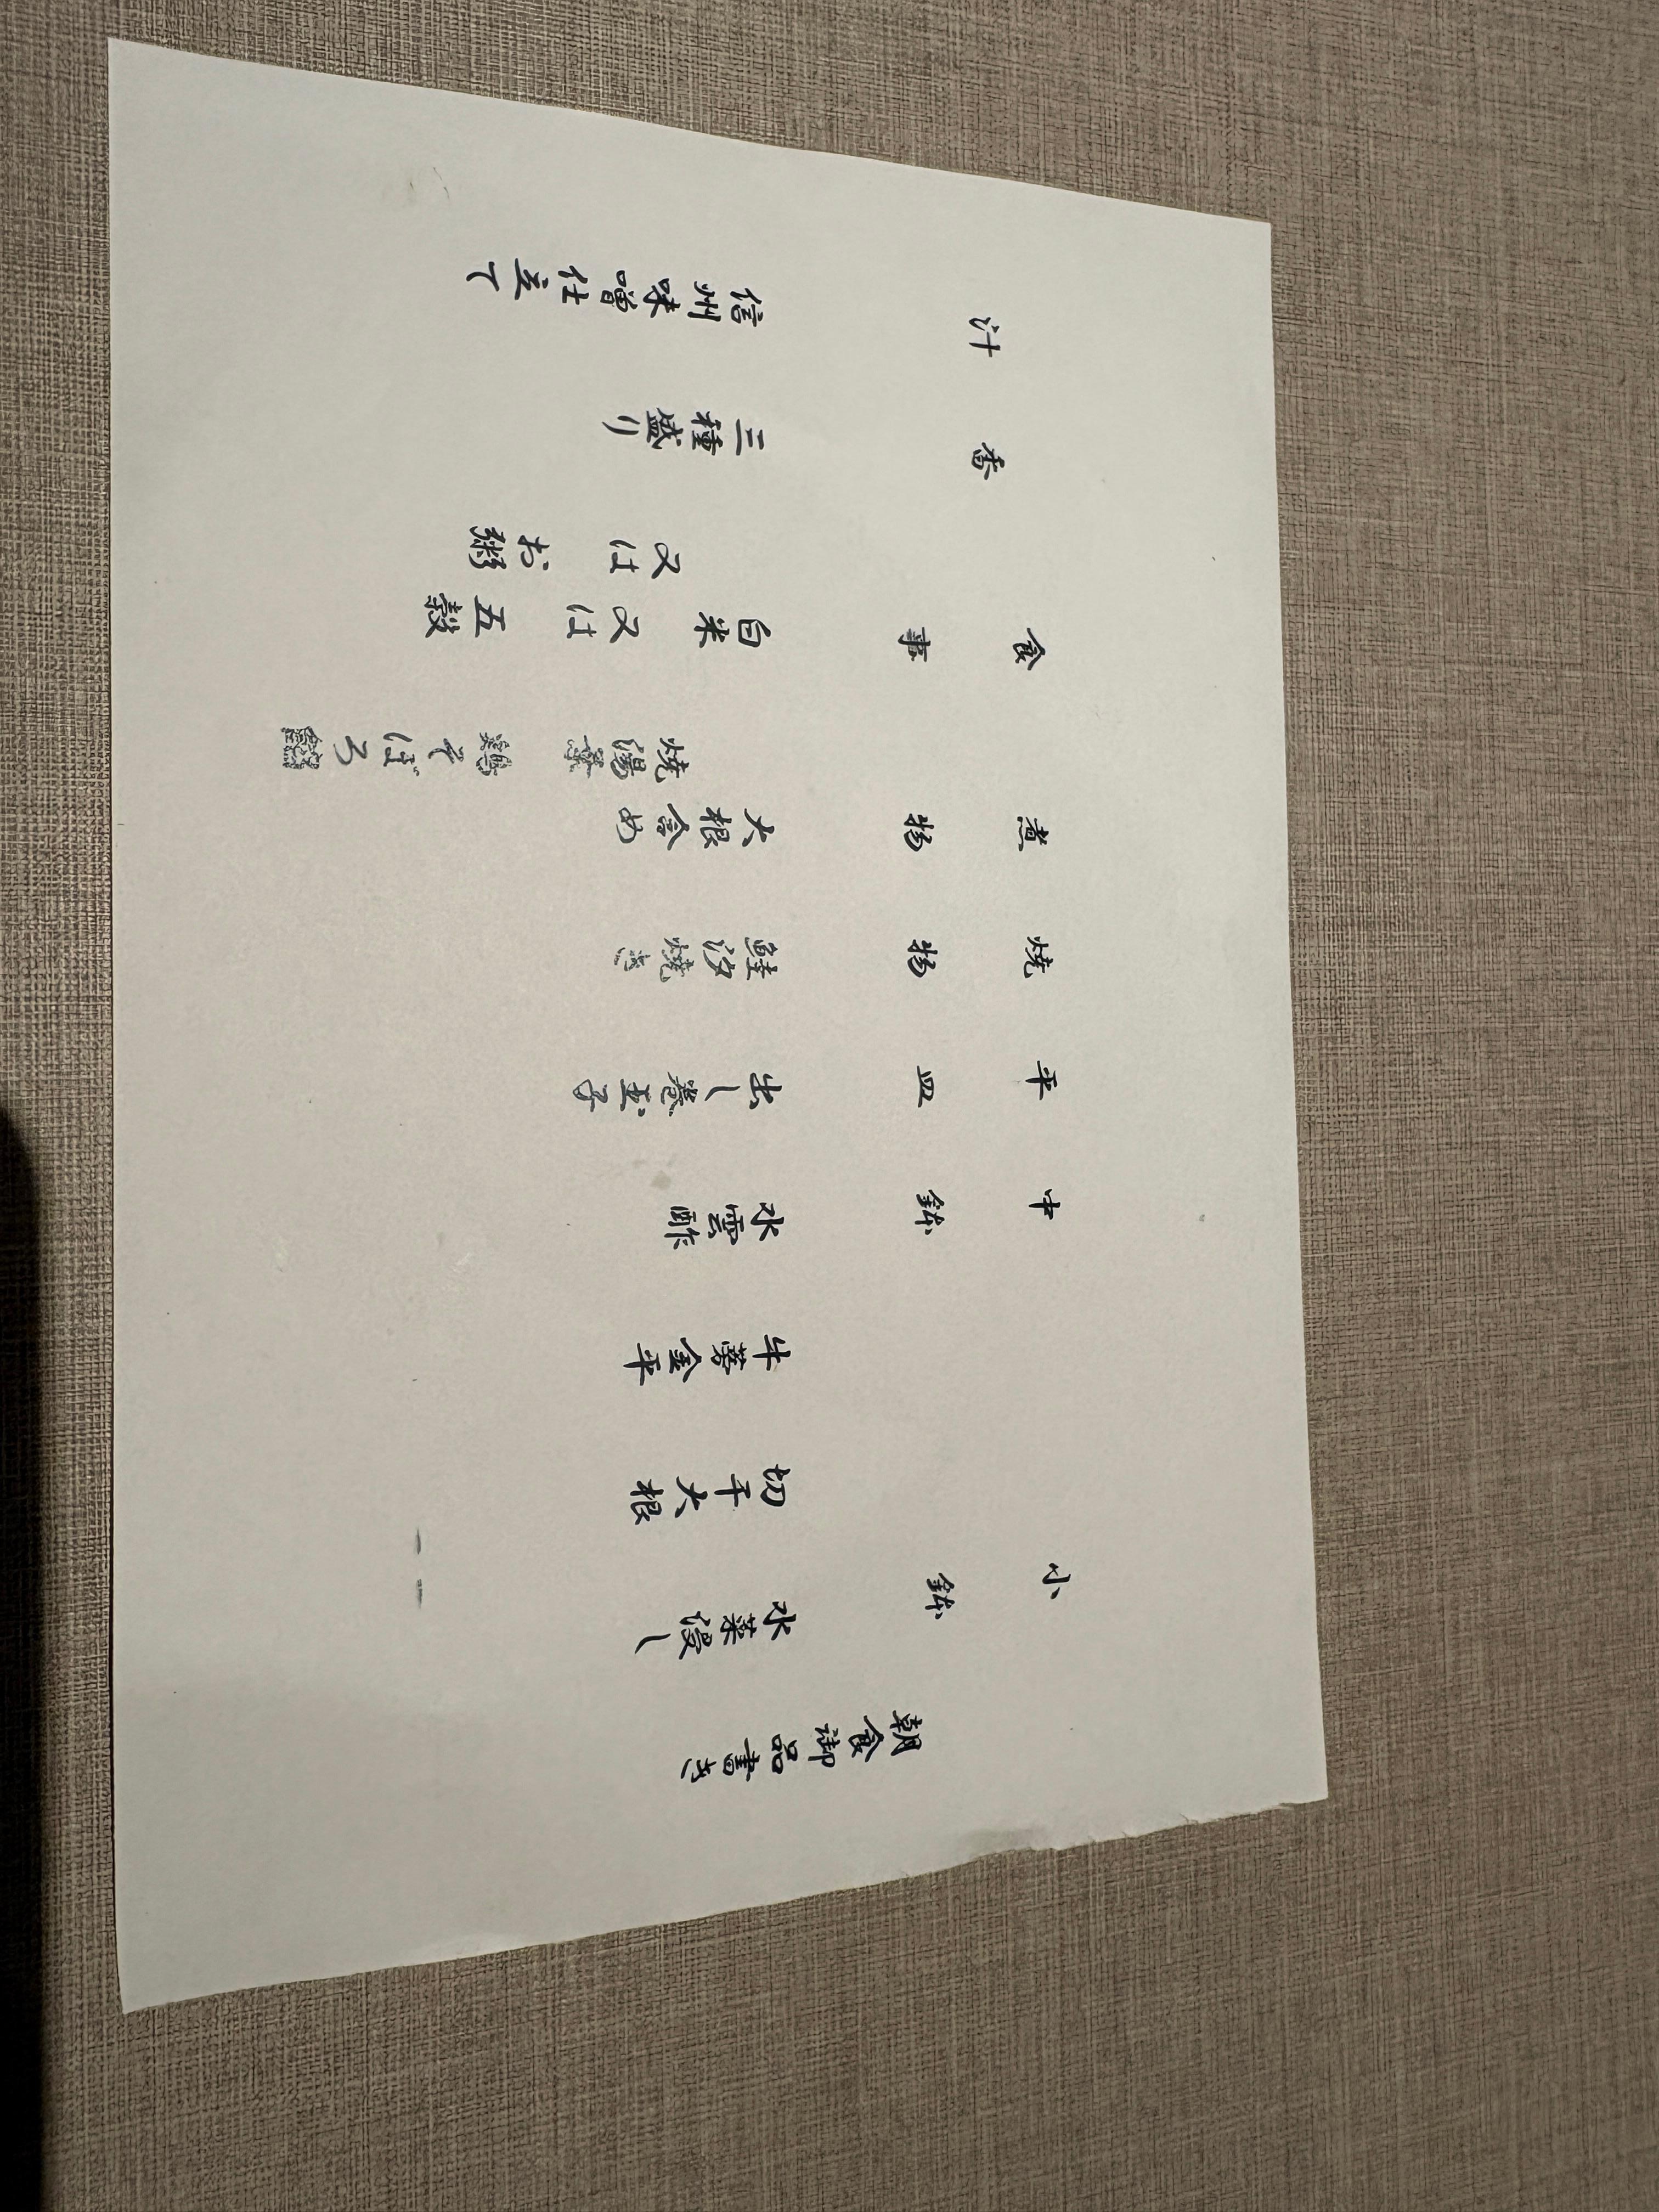 朝食御品書き
小鉢
水菜浸し
切干大根
牛蒡金平
中鉢
水雲酢
平皿
出し巻玉子
焼物
鮭汐焼き
煮物
大根含め
焼湯葉 鶏そぼろ餡
食事
白米 又は 五穀
又は お粥
香
三種盛り
汁
信州味噌仕立て